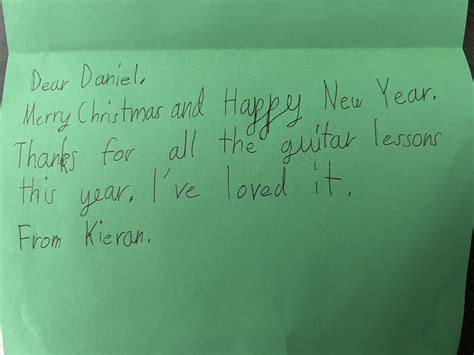 Dear Daniel,
Merry Christmas and Happy New Year.
Thanks for all the guitar lessons
this year. I've loved it.
From Kieran.